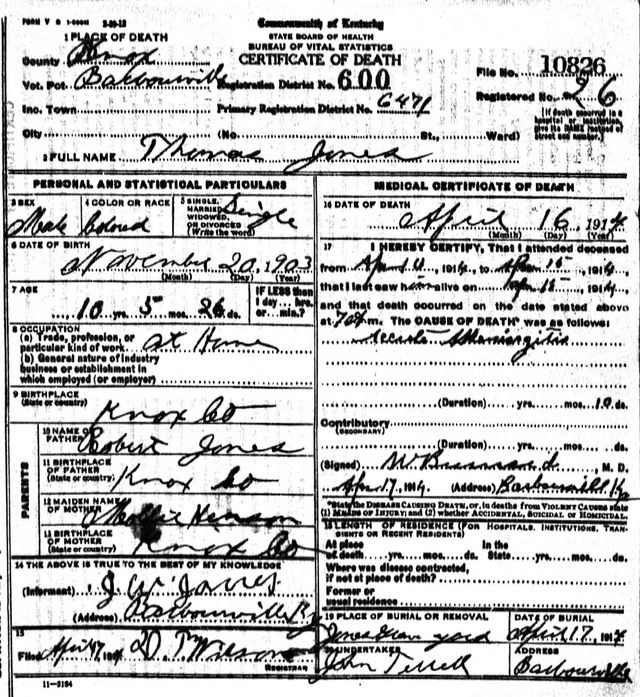 FORM V S 1-500M 2-20-12
Commonwealth of Kentucky
STATE BOARD OF HEALTH
BUREAU OF VITAL STATISTICS
CERTIFICATE OF DEATH
1 PLACE OF DEATH
County Knox
Vot. Pct. Barbourville
Inc. Town
City (No. St., Ward)
Registration District No. 600
Primary Registration District No. 6471
File No. 10826
Registered No. 26
[If death occurred in a hospital or institution, give its NAME instead of street and number.]
2 FULL NAME Thomas Jones
PERSONAL AND STATISTICAL PARTICULARS
3 SEX Male
4 COLOR OR RACE Colored
5 SINGLE, MARRIED, WIDOWED, OR DIVORCED (Write the word) Single
6 DATE OF BIRTH
November 20, 1903
(Month) (Day) (Year)
7 AGE
10 yrs. 5 mos. 26 ds.
IF LESS than 1 day... hrs. or... min.?
8 OCCUPATION
(a) Trade, profession, or particular kind of work at Home
(b) General nature of industry
business or establishment in
which employed (or employer)
9 BIRTHPLACE
(State or country) Knox Co
PARENTS
10 NAME OF FATHER Robert Jones
11 BIRTHPLACE OF FATHER (State or country) Knox Co
12 MAIDEN NAME OF MOTHER Mollie Henson
13 BIRTHPLACE OF MOTHER (State or country) Knox Co
14 THE ABOVE IS TRUE TO THE BEST OF MY KNOWLEDGE
(Informant) J. W. Jones
(Address) Barbourville Ky
15
Filed April 17, 1914 D. T. Wilson
REGISTRAR
11-3184
MEDICAL CERTIFICATE OF DEATH
16 DATE OF DEATH
April 16, 1914
(Month) (Day) (Year)
17 I HEREBY CERTIFY, That I attended deceased
from Apr 10, 1914, to Apr 15, 1914,
that I last saw him alive on Apr 15, 1914,
and that death occurred on the date stated above
at m. The CAUSE OF DEATH* was as follows:
(Duration) yrs. mos. 10 ds.
Contributory
(SECONDARY)
(Duration) yrs. mos. ds.
(Signed) M. D.
Apr. 17, 1914 (Address) Barbourville Ky
*State the DISEASE CAUSING DEATH, or, in deaths from VIOLENT CAUSES state
(1) MEANS OF INJURY; and (2) whether ACCIDENTAL, SUICIDAL or HOMICIDAL.
18 LENGTH OF RESIDENCE (FOR HOSPITALS, INSTITUTIONS, TRANSIENTS OR RECENT RESIDENTS)
At place of death yrs. mos. ds. In the State yrs. mos. ds.
Where was disease contracted,
if not at place of death?
Former or
usual residence
19 PLACE OF BURIAL OR REMOVAL
Jones Grave yard
DATE OF BURIAL
April 17, 1914
20 UNDERTAKER
John Terrell
ADDRESS
Barbourville